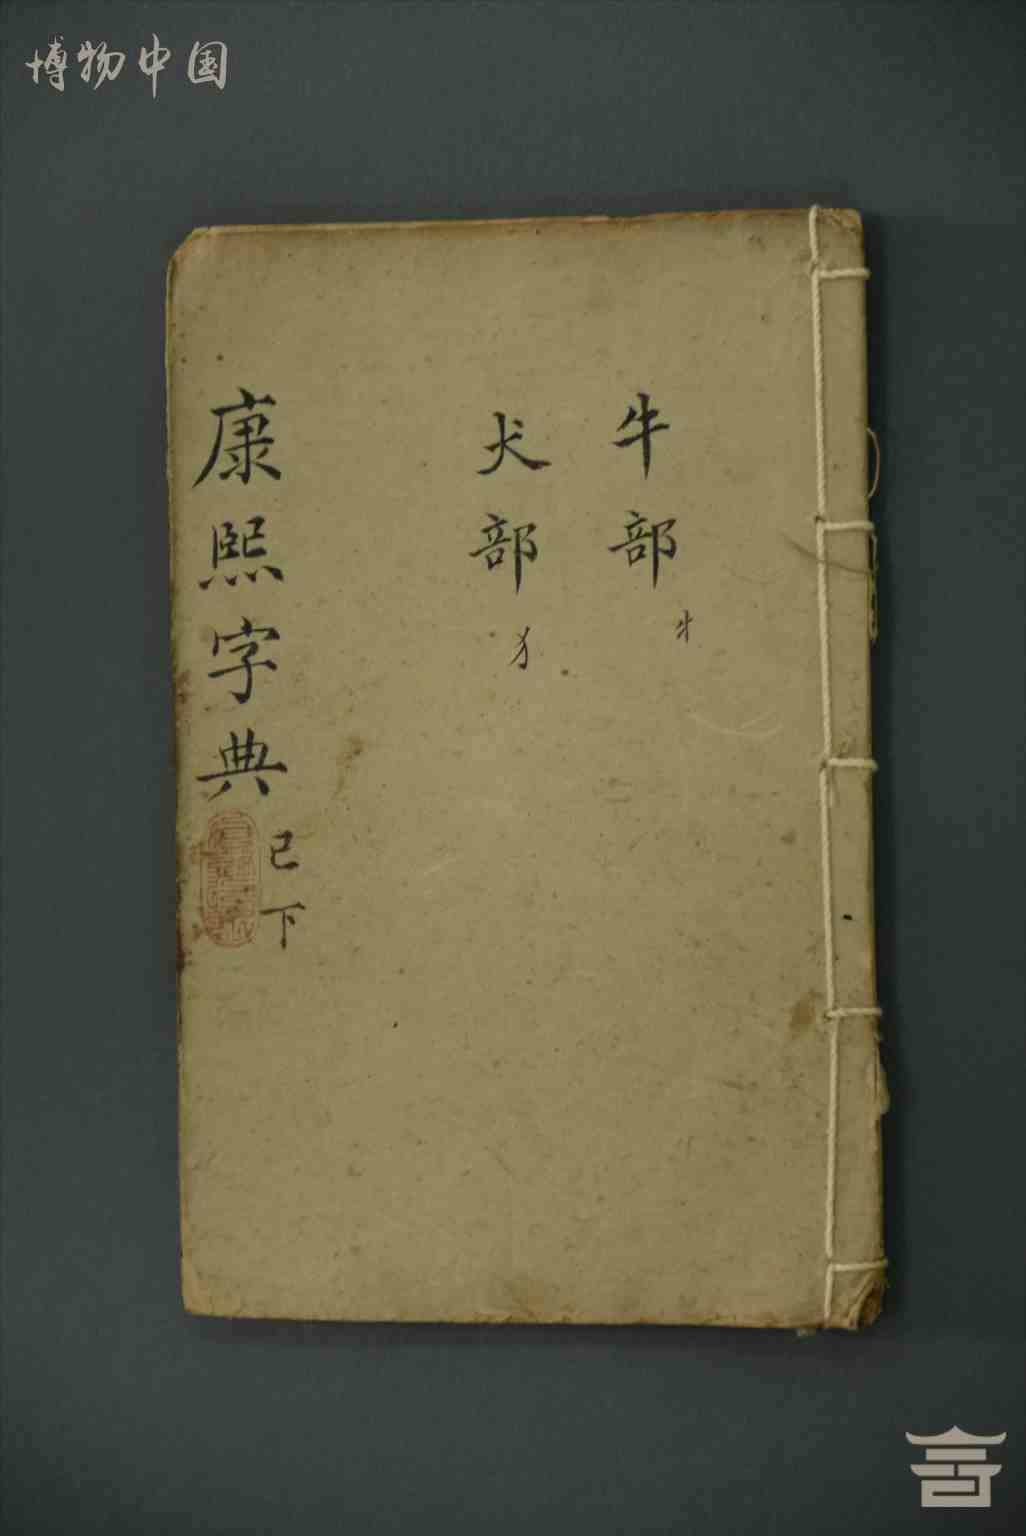 博物中国
牛部
牜
犬部
犭
康熙字典
巳下